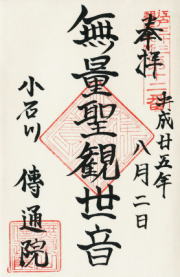 奉拝
平成廿五年
八月二日
無量聖観世音
小石川
傳通院